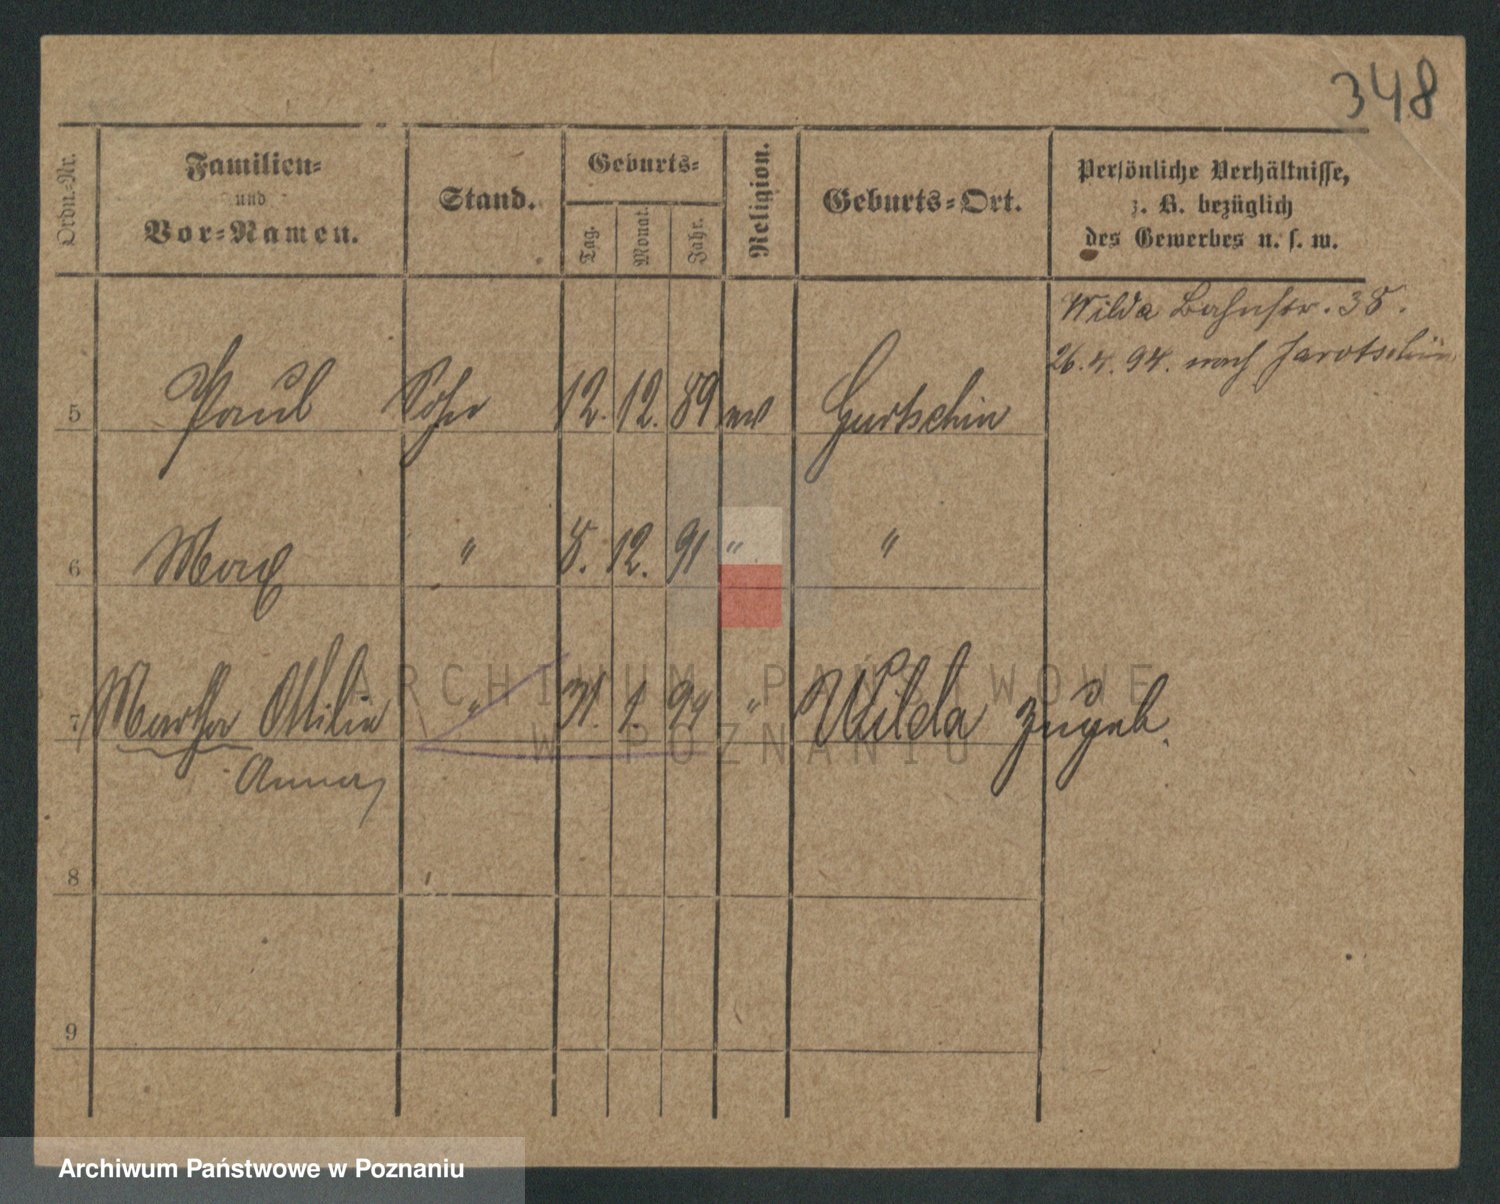 348
Ordn.-Nr.
Familien-
und
Vor-Namen.
Stand.
Geburts-
Tag.
Monat.
Jahr.
Religion.
Geburts-Ort.
Persönliche Verhältnisse,
z. B. bezüglich
des Gewerbes u. s. w.
Wilda Bahnstr. 38.
26.4.94. nach Jarotschin
5 Paul Sohn 12. 12. 89 ev Gurtschin
6 Max " 8. 12. 91 " "
7 Martha Ottilie " 31. 1. 94 " Wilda zugeb.
Anna
8
9
ARCHIWUM PAŃSTWOWE
W POZNANIU
Archiwum Państwowe w Poznaniu